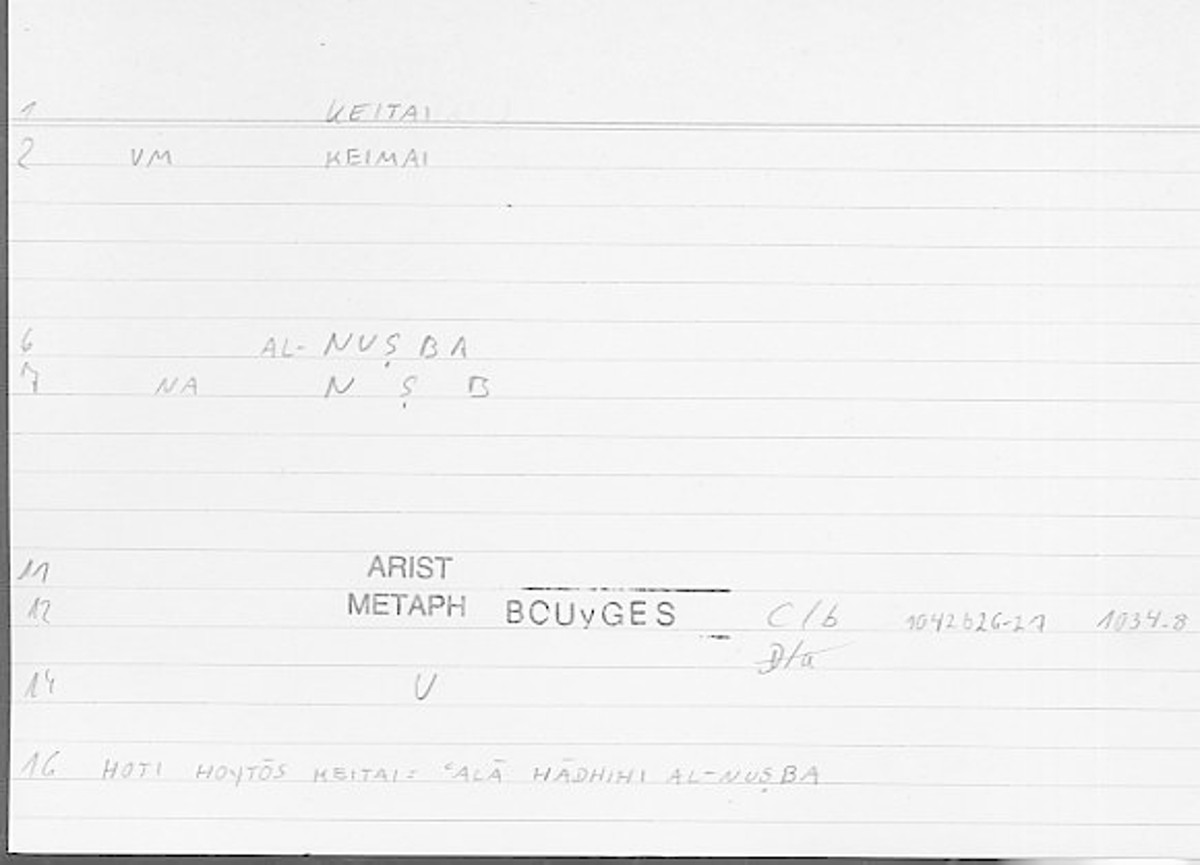 1 KEITAI
2 VM KEIMAI
6 AL- NUṢBA
7 NA N Ṣ B
11 ARIST
12 METAPH BCUyGES C/b 1042b26-27 1034.8
D/a
14 V
16 HOTI HOYTŌS KEITAI: ʿALĀ HĀDHIHI AL-NUṢBA